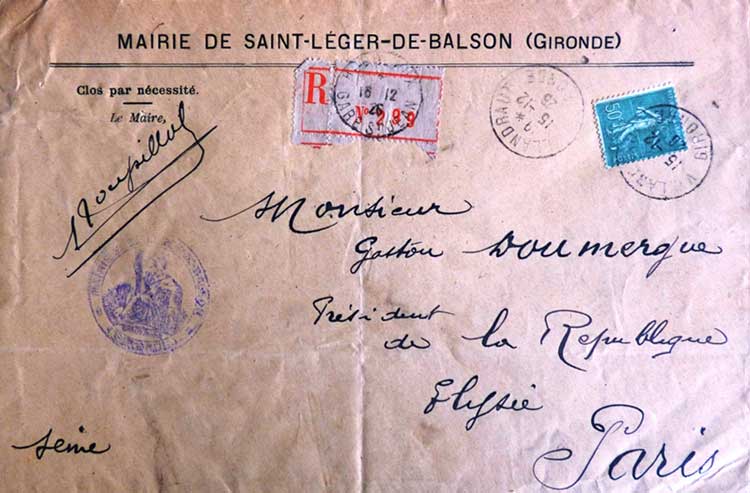 MAIRIE DE SAINT-LÉGER-DE-BALSON (GIRONDE)
Clos par nécessité.
Le Maire,
R
No 299
16 12
26
GARE St JEAN
VILLANDRAUT
15 -12
26
50c
GIRONDE
Monsieur
Gaston Doumergue
Président
de la Republique
Elysée
Paris
Seine